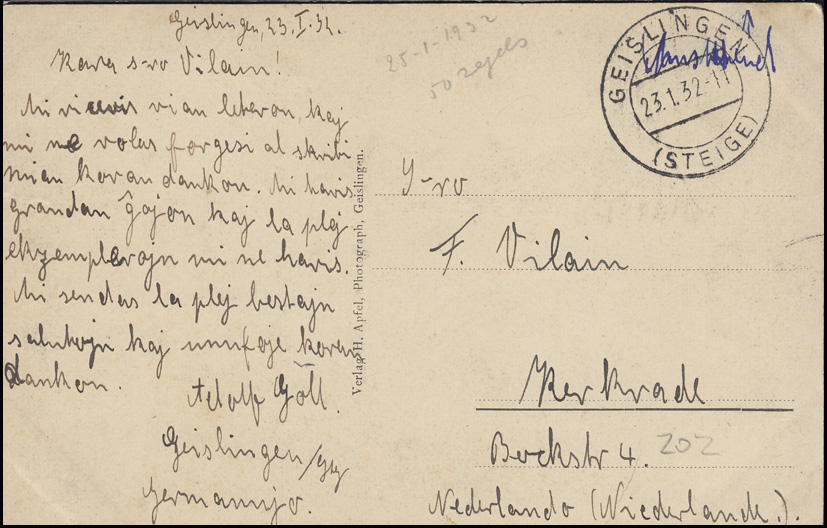 Geislingen, 23. I. 32.
Kara s-ro Vilain!
Mi ricevis vian leteron, kaj
mi ne volas forgesi al skribi
mian koran dankon. Mi havis
grandan ĝojon kaj la plej
ekzemplerojn mi ne havis.
Mi sendas la plej bestajn
salutojn kaj unufoje koran
dankon.
Adolf Göll.
Geislingen/Stg
Germanujo.
25-1-1932
50 zegels
Verlag H. Apfel, Photograph, Geislingen.
GEISLINGEN
23.1.32.-11
(STEIGE)
S-ro
F. Vilain
Kerkrade
Bockstr 4. 202
Nederlando (Niederlande.).